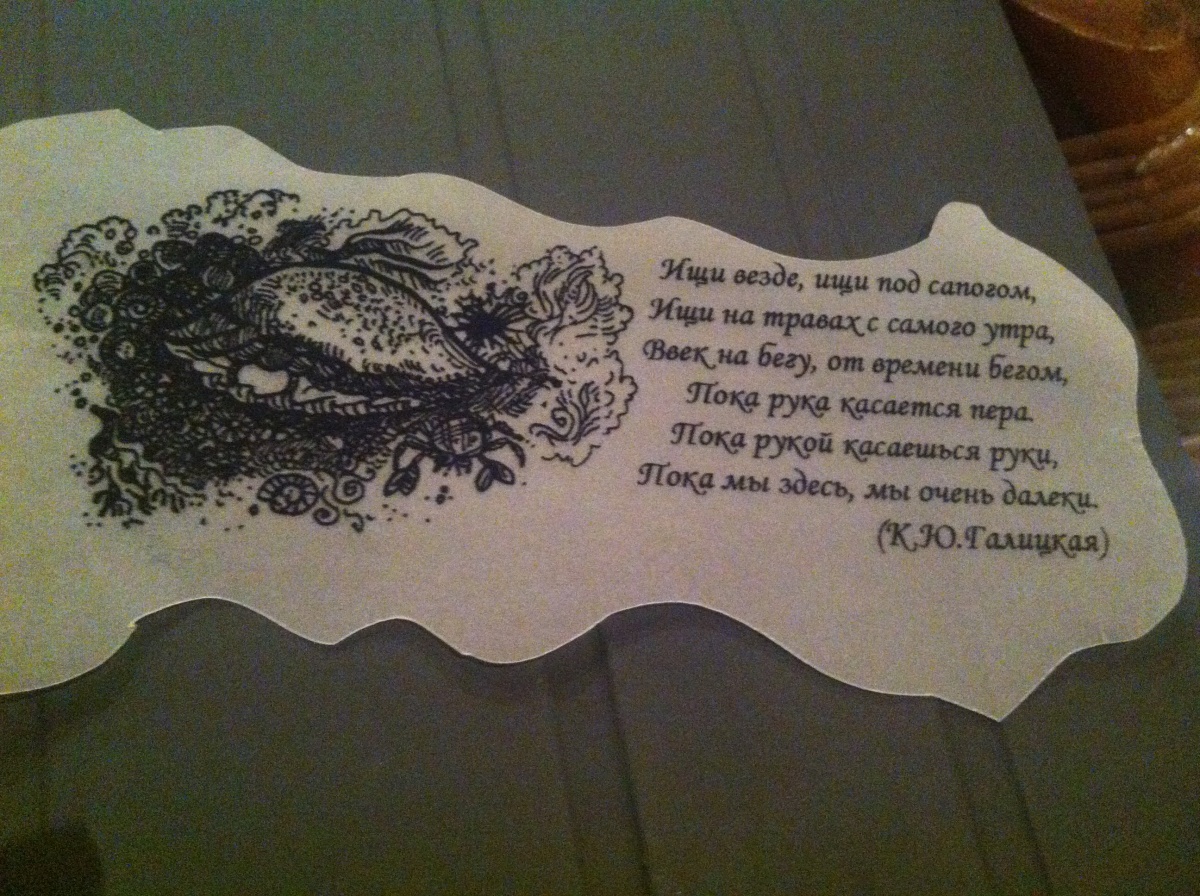 Ищи везде, ищи под сапогом,
Ищи на травах с самого утра,
Ввек на бегу, от времени бегом,
Пока рука касается пера.
Пока рукой касаешься руки,
Пока мы здесь, мы очень далеки.
(К.Ю.Галицкая)